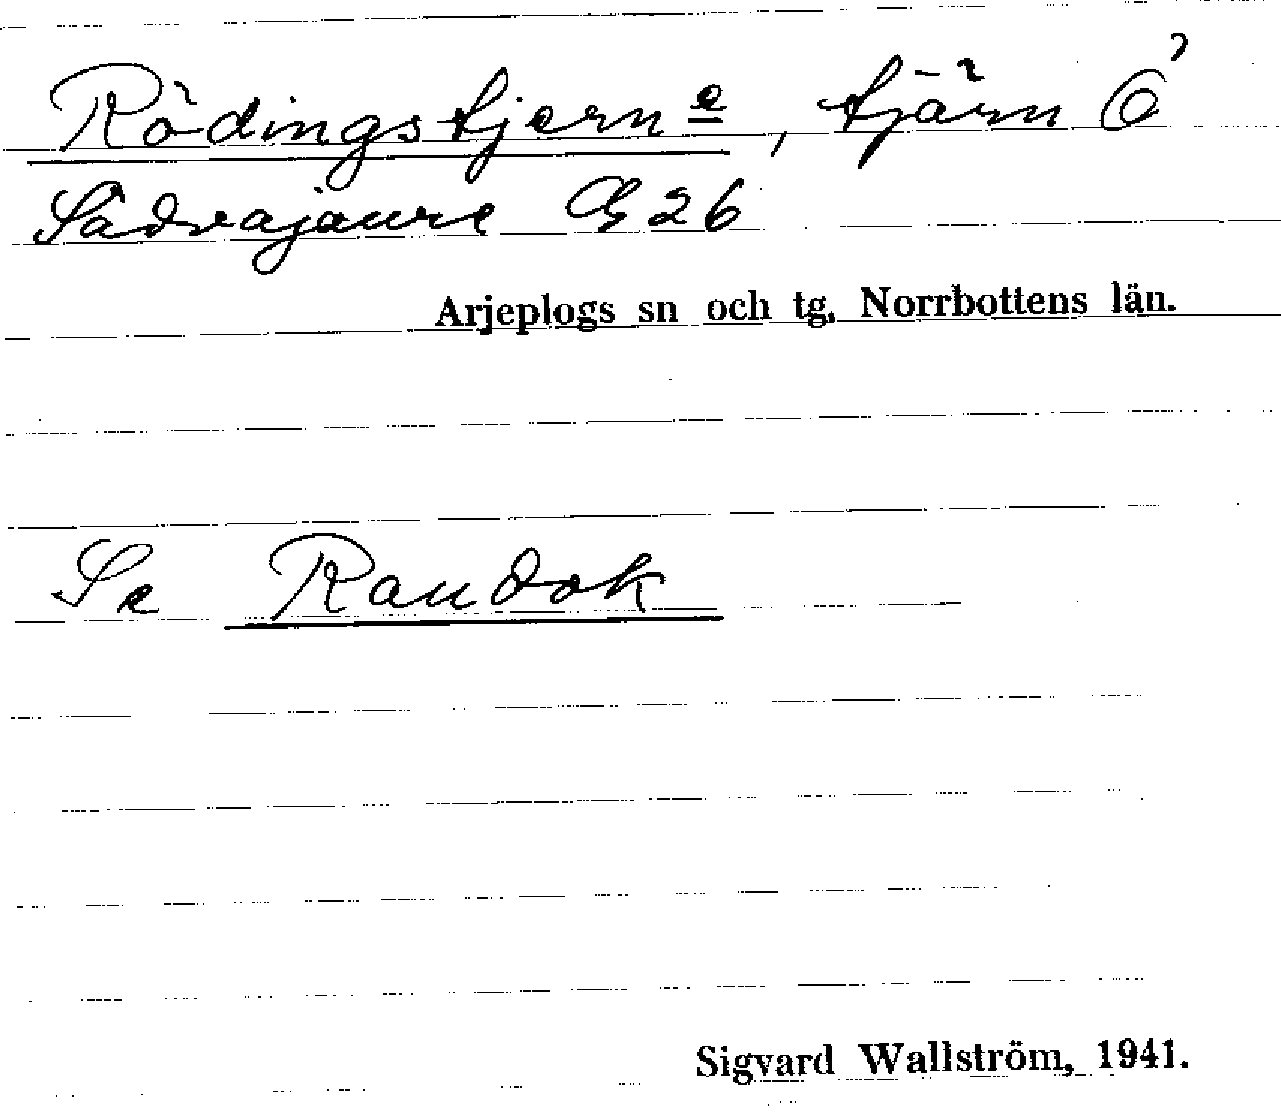 Rödingstjerne, tjärn Ö
Sädvajaure G 26
Arjeplogs sn och tg. Norrbottens län.
Se Raudok
Sigvard Wallström, 1941.